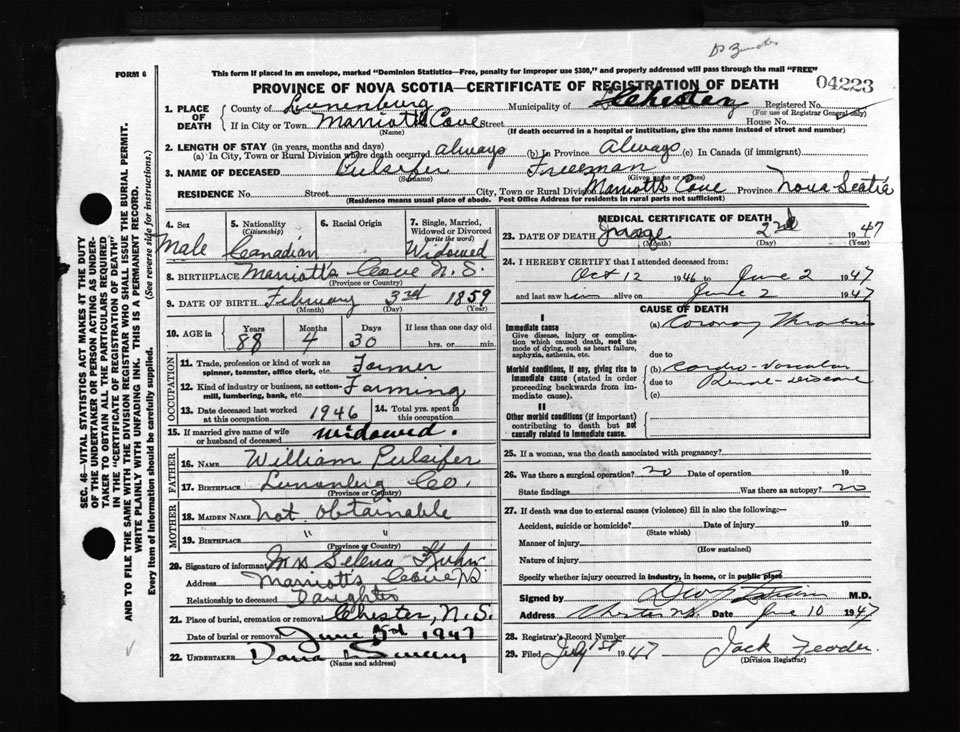 FORM 6
This form if placed in an envelope, marked "Dominion Statistics—Free, penalty for improper use $300," and properly addressed will pass through the mail "FREE"
PROVINCE OF NOVA SCOTIA—CERTIFICATE OF REGISTRATION OF DEATH
04223
1. PLACE OF DEATH
County of Lunenburg Municipality of Chester Registered No.
(For use of Registrar General only)
If in City or Town Marriott's Cove Street House No.
(Name) (If death occurred in a hospital or institution, give the name instead of street and number)
2. LENGTH OF STAY (in years, months and days)
(a) In City, Town or Rural Division where death occurred always (b) In Province Always (c) In Canada (if immigrant)
3. NAME OF DECEASED Pulsifer Freeman
(Surname) (Given name or names)
RESIDENCE No. Street City, Town or Rural Division Marriott's Cove Province Nova Scotia
(Residence means usual place of abode. Post Office Address for residents in rural parts not sufficient)
4. Sex Male
5. Nationality (Citizenship) Canadian
6. Racial Origin
7. Single, Married, Widowed or Divorced (write the word) Widowed
8. BIRTHPLACE Marriott's Cove N.S.
(Province or Country)
9. DATE OF BIRTH February 3rd 1859
(Month) (Day) (Year)
10. AGE in Years 88 Months 4 Days 30 If less than one day old hrs. or min.
OCCUPATION
11. Trade, profession or kind of work as spinner, teamster, office clerk, etc. Farmer
12. Kind of industry or business, as cotton-mill, lumbering, bank, etc. Farming
13. Date deceased last worked at this occupation 1946
14. Total yrs. spent in this occupation
15. If married give name of wife or husband of deceased widowed.
FATHER
16. NAME William Pulsifer
17. BIRTHPLACE Lunenburg Co.
(Province or Country)
MOTHER
18. MAIDEN NAME Not obtainable
19. BIRTHPLACE " "
(Province or Country)
20. Signature of informant Mrs Selena Kuhn
Address Marriott's Cove NS
Relationship to deceased Daughter
21. Place of burial, cremation or removal Chester, N.S.
Date of burial or removal June 1947
22. UNDERTAKER
(Name and address)
MEDICAL CERTIFICATE OF DEATH
23. DATE OF DEATH 2nd 1947
(Month) (Day) (Year)
24. I HEREBY CERTIFY that I attended deceased from:
Oct 12 1946 to June 2 1947
and last saw him alive on June 2 1947
CAUSE OF DEATH
I
Immediate cause
Give disease, injury or complication which caused death, not the mode of dying, such as heart failure, asphyxia, asthenia, etc.
(a) Coronary Thrombosis
due to
Morbid conditions, if any, giving rise to immediate cause (stated in order proceeding backwards from immediate cause).
(b) Cardio-Vascular
due to Renal-disease
(c)
II
Other morbid conditions (if important) contributing to death but not causally related to immediate cause.
25. If a woman, was the death associated with pregnancy?
26. Was there a surgical operation? no Date of operation 19
State findings Was there an autopsy? no
27. If death was due to external causes (violence) fill in also the following:—
Accident, suicide or homicide? Date of injury 19
(State which)
Manner of injury
(How sustained)
Nature of injury
Specify whether injury occurred in industry, in home, or in public place
Signed by M.D.
Address Chester N.S. Date June 10 1947
28. Registrar's Record Number
29. Filed July 1st 1947 Jack
(Division Registrar)
SEC. 46—VITAL STATISTICS ACT MAKES IT THE DUTY
OF THE UNDERTAKER OR PERSON ACTING AS UNDER-
TAKER TO OBTAIN ALL THE PARTICULARS REQUIRED
IN THE "CERTIFICATE OF REGISTRATION OF DEATH"
AND TO FILE THE SAME WITH THE DIVISION REGISTRAR WHO SHALL ISSUE THE BURIAL PERMIT.
WRITE PLAINLY WITH UNFADING INK. THIS IS A PERMANENT RECORD.
Every item of Information should be carefully supplied. (See reverse side for instructions.)